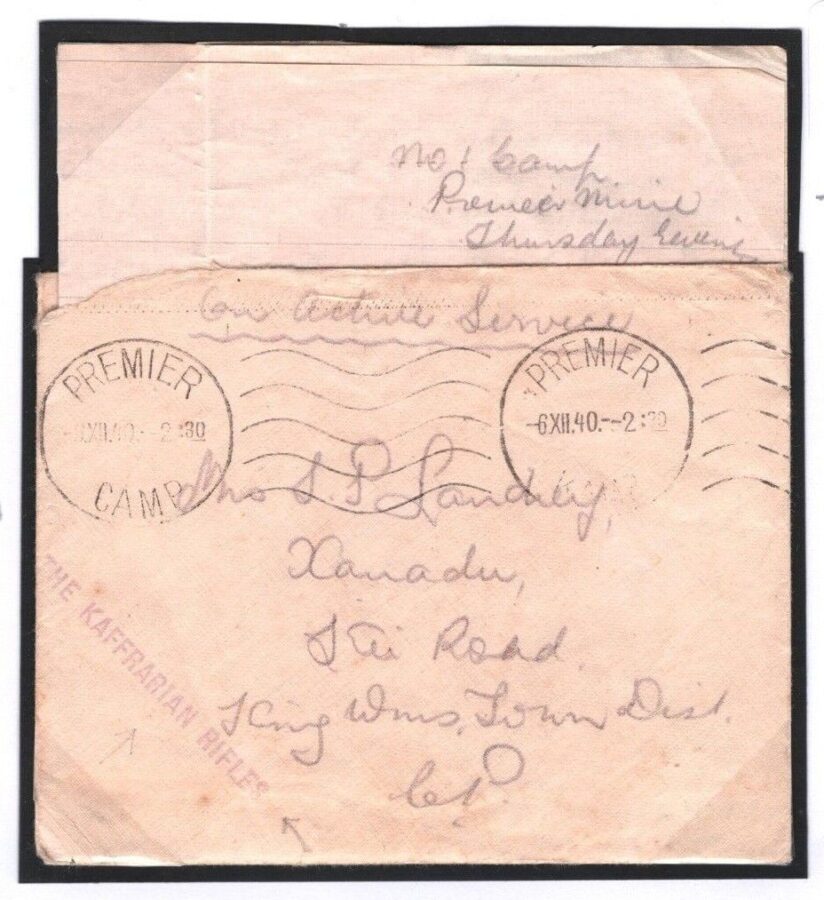 No 1 Camp
Premier Mine
Thursday Evening
On Active Service
PREMIER
XII.40.--2:30
CAMP
PREMIER
-6XII.40.--2:30
L.P. Landrey,
Xanadu,
Kei Road.
King Wms. Town Dist.
C.P.
THE KAFFRARIAN RIFLES